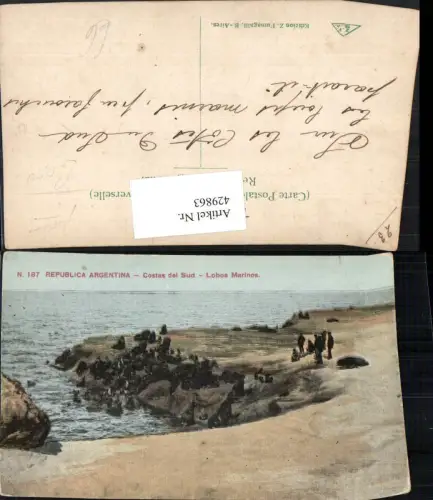 Edicion Z. Fumagalli, B.-Aires.
Sur les Côtes du Sud
les loups marins, peu farouches
parait-il
(Carte Postale
verselle)
Re
Artikel Nr.
429863
23
N. 187 REPUBLICA ARGENTINA – Costas del Sud – Lobos Marinos.